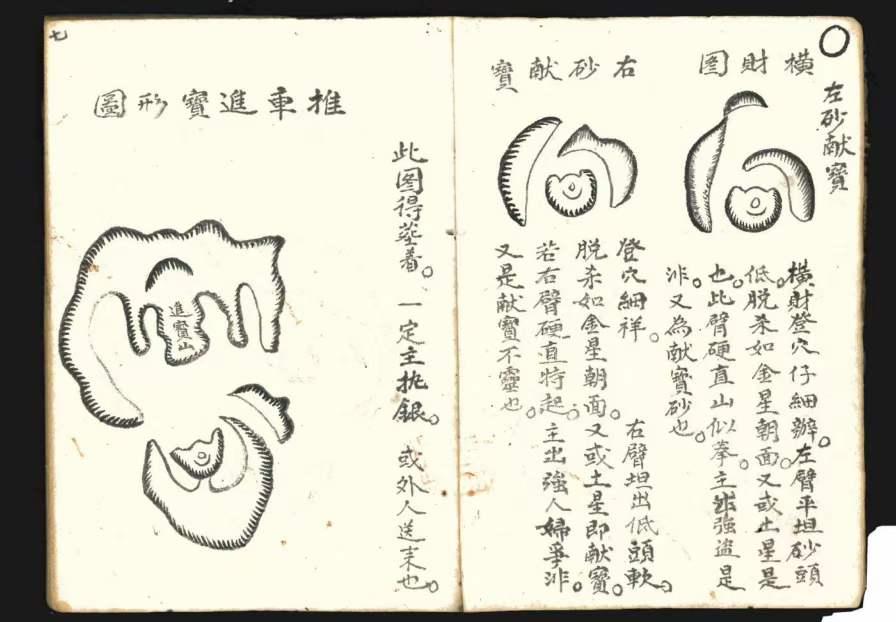 左砂献寳
橫財图
橫財登穴仔細辦。左臂平坦砂頭
低。脱杀如金星朝面。又或土星是
也。此臂硬直山似拳。主出強盗是
非。又為献寳砂也。
右砂献寳
登穴細祥。右臂坦出低頭軟。
脱杀如金星朝面。又或土星即献寳。
若右臂硬直特起。主出強人婦爭非。
又是献寳不靈也。
此图得葬着。一定主执銀。或外人送来也。
推車進寳形圖
進寳山
七